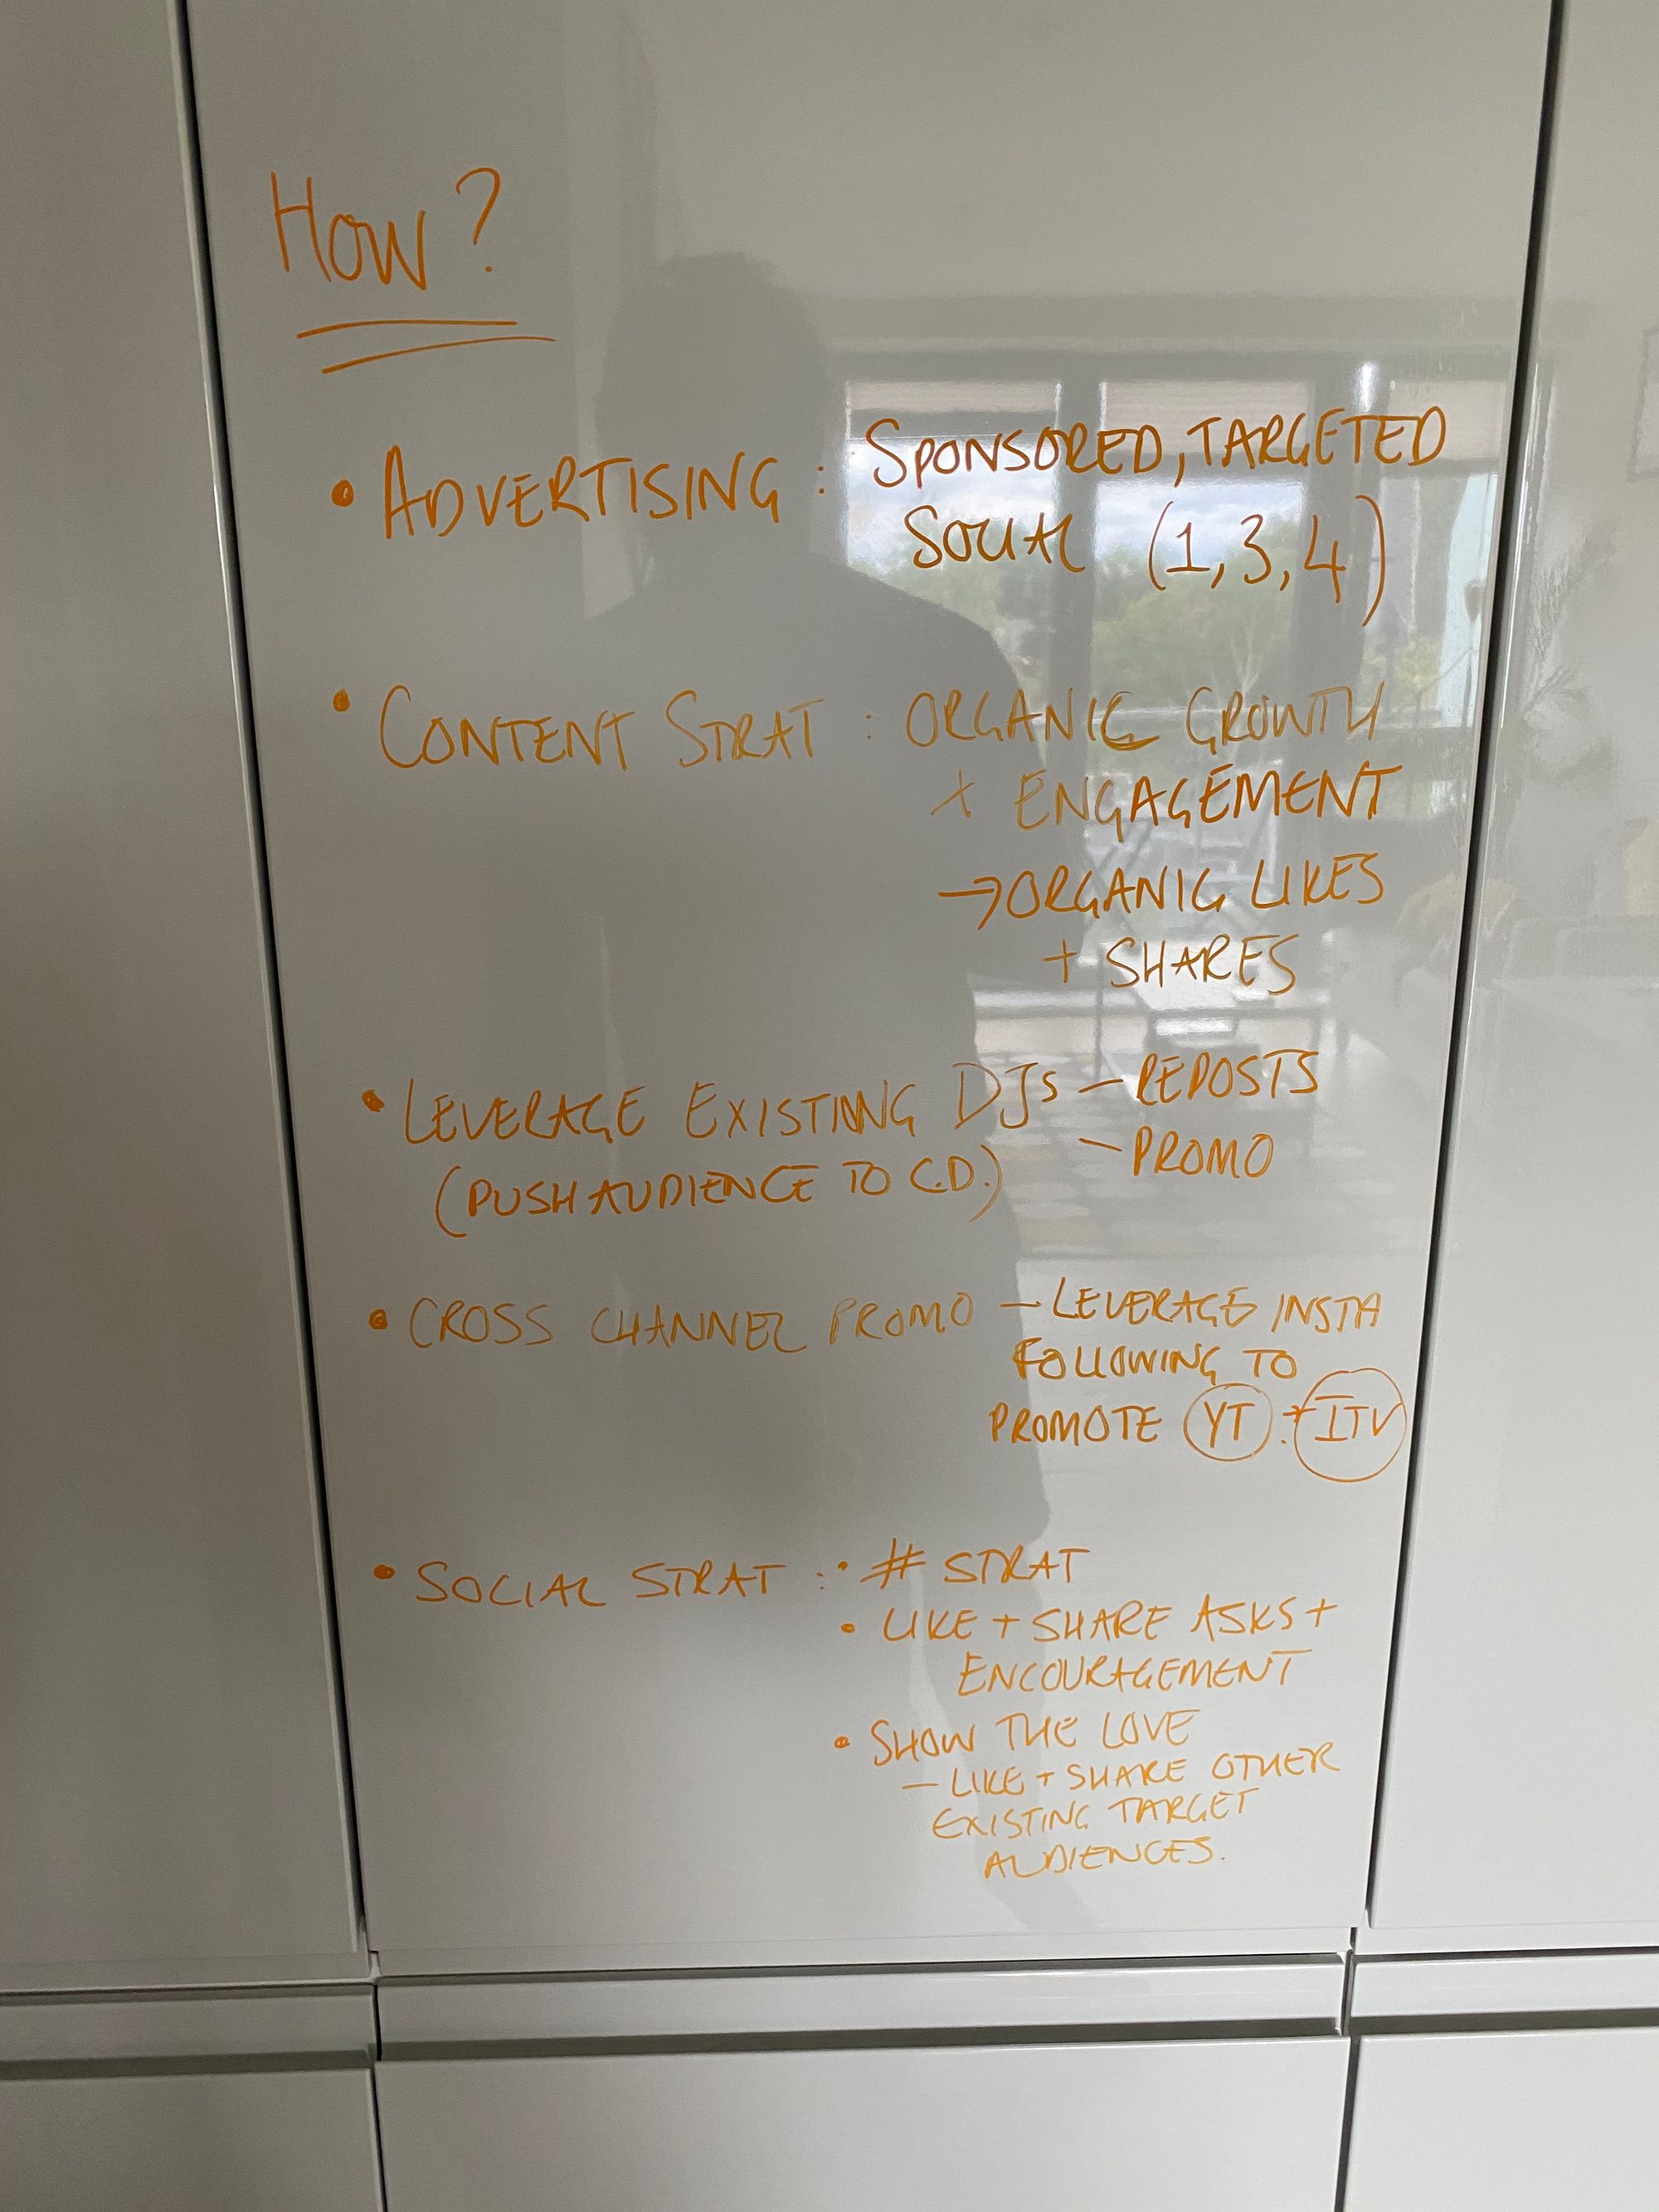 How?
• ADVERTISING : SPONSORED, TARGETED
SOCIAL (1,3,4)
• CONTENT STRAT : ORGANIC GROWTH
+ ENGAGEMENT
→ ORGANIC LIKES
+ SHARES
• LEVERAGE EXISTING DJs — REPOSTS
(PUSH AUDIENCE TO C.D.) — PROMO
• CROSS CHANNEL PROMO — LEVERAGE INSTA
FOLLOWING TO
PROMOTE YT + ITV
• SOCIAL STRAT : • # STRAT
• LIKE + SHARE ASKS +
ENCOURAGEMENT
• SHOW THE LOVE
— LIKE + SHARE OTHER
EXISTING TARGET
AUDIENCES.